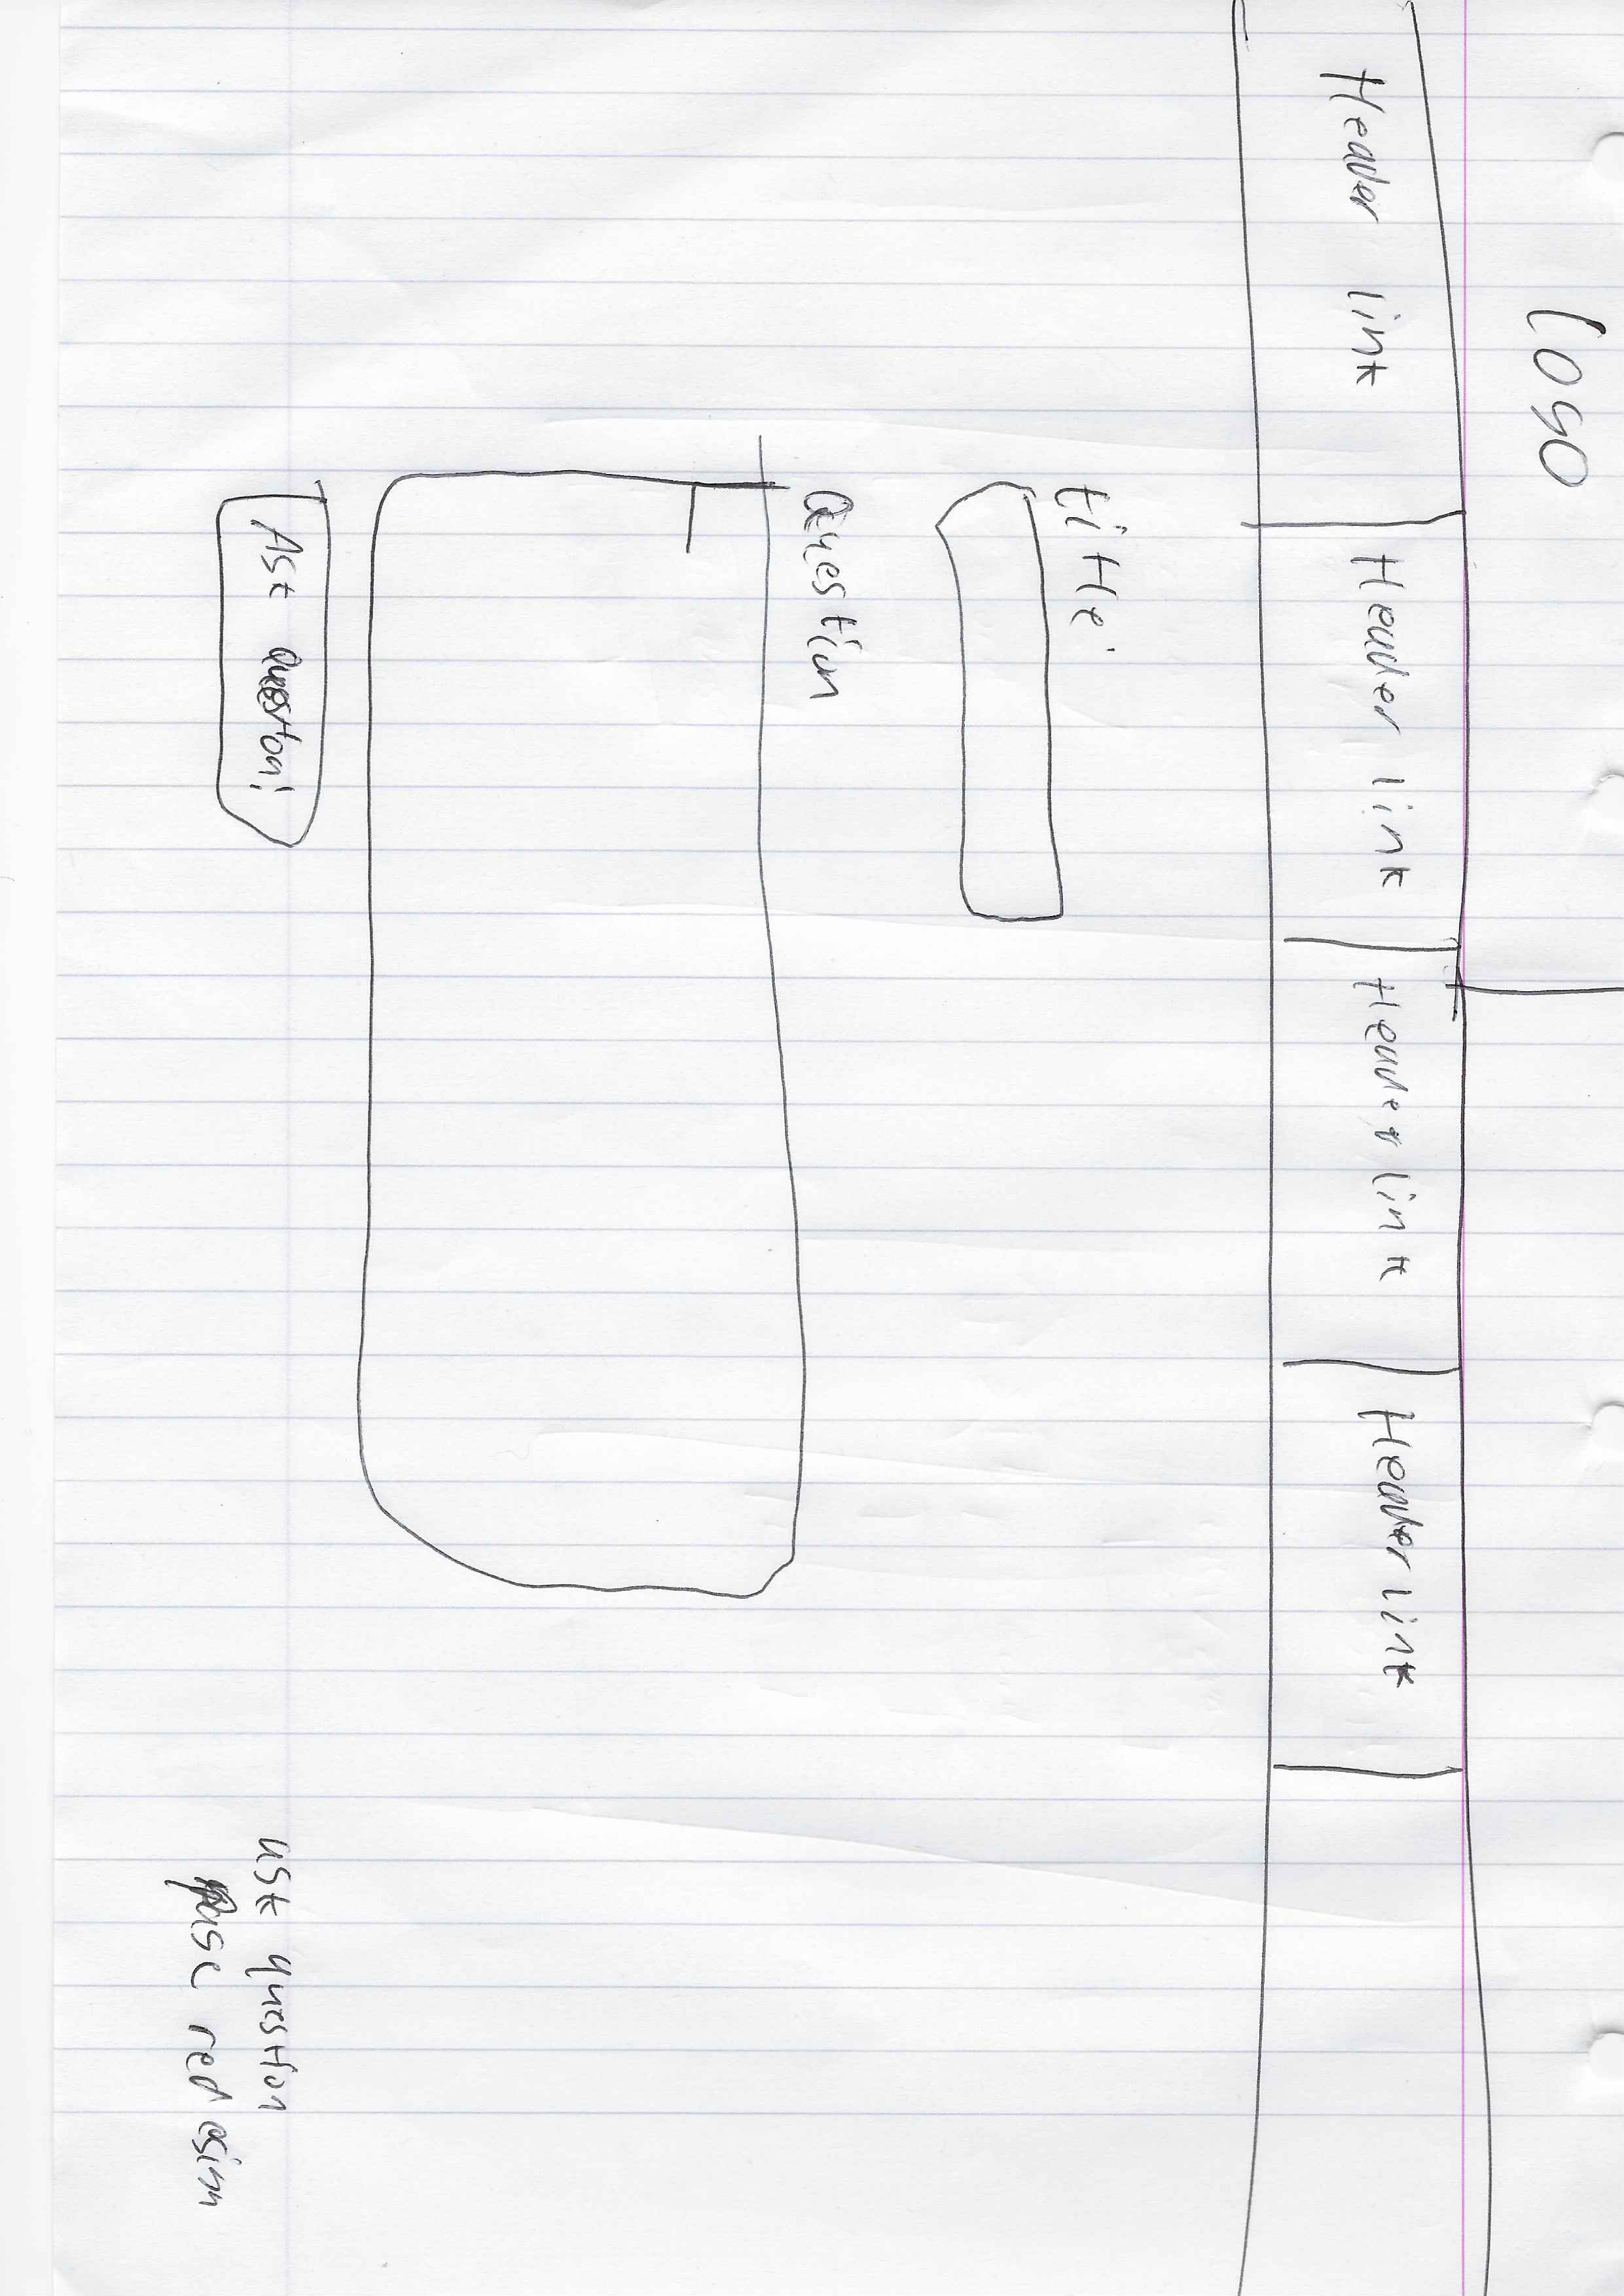 logo
Header link Header link Header link Header link
title:
Question
Ask Question!
ask question
page redesign